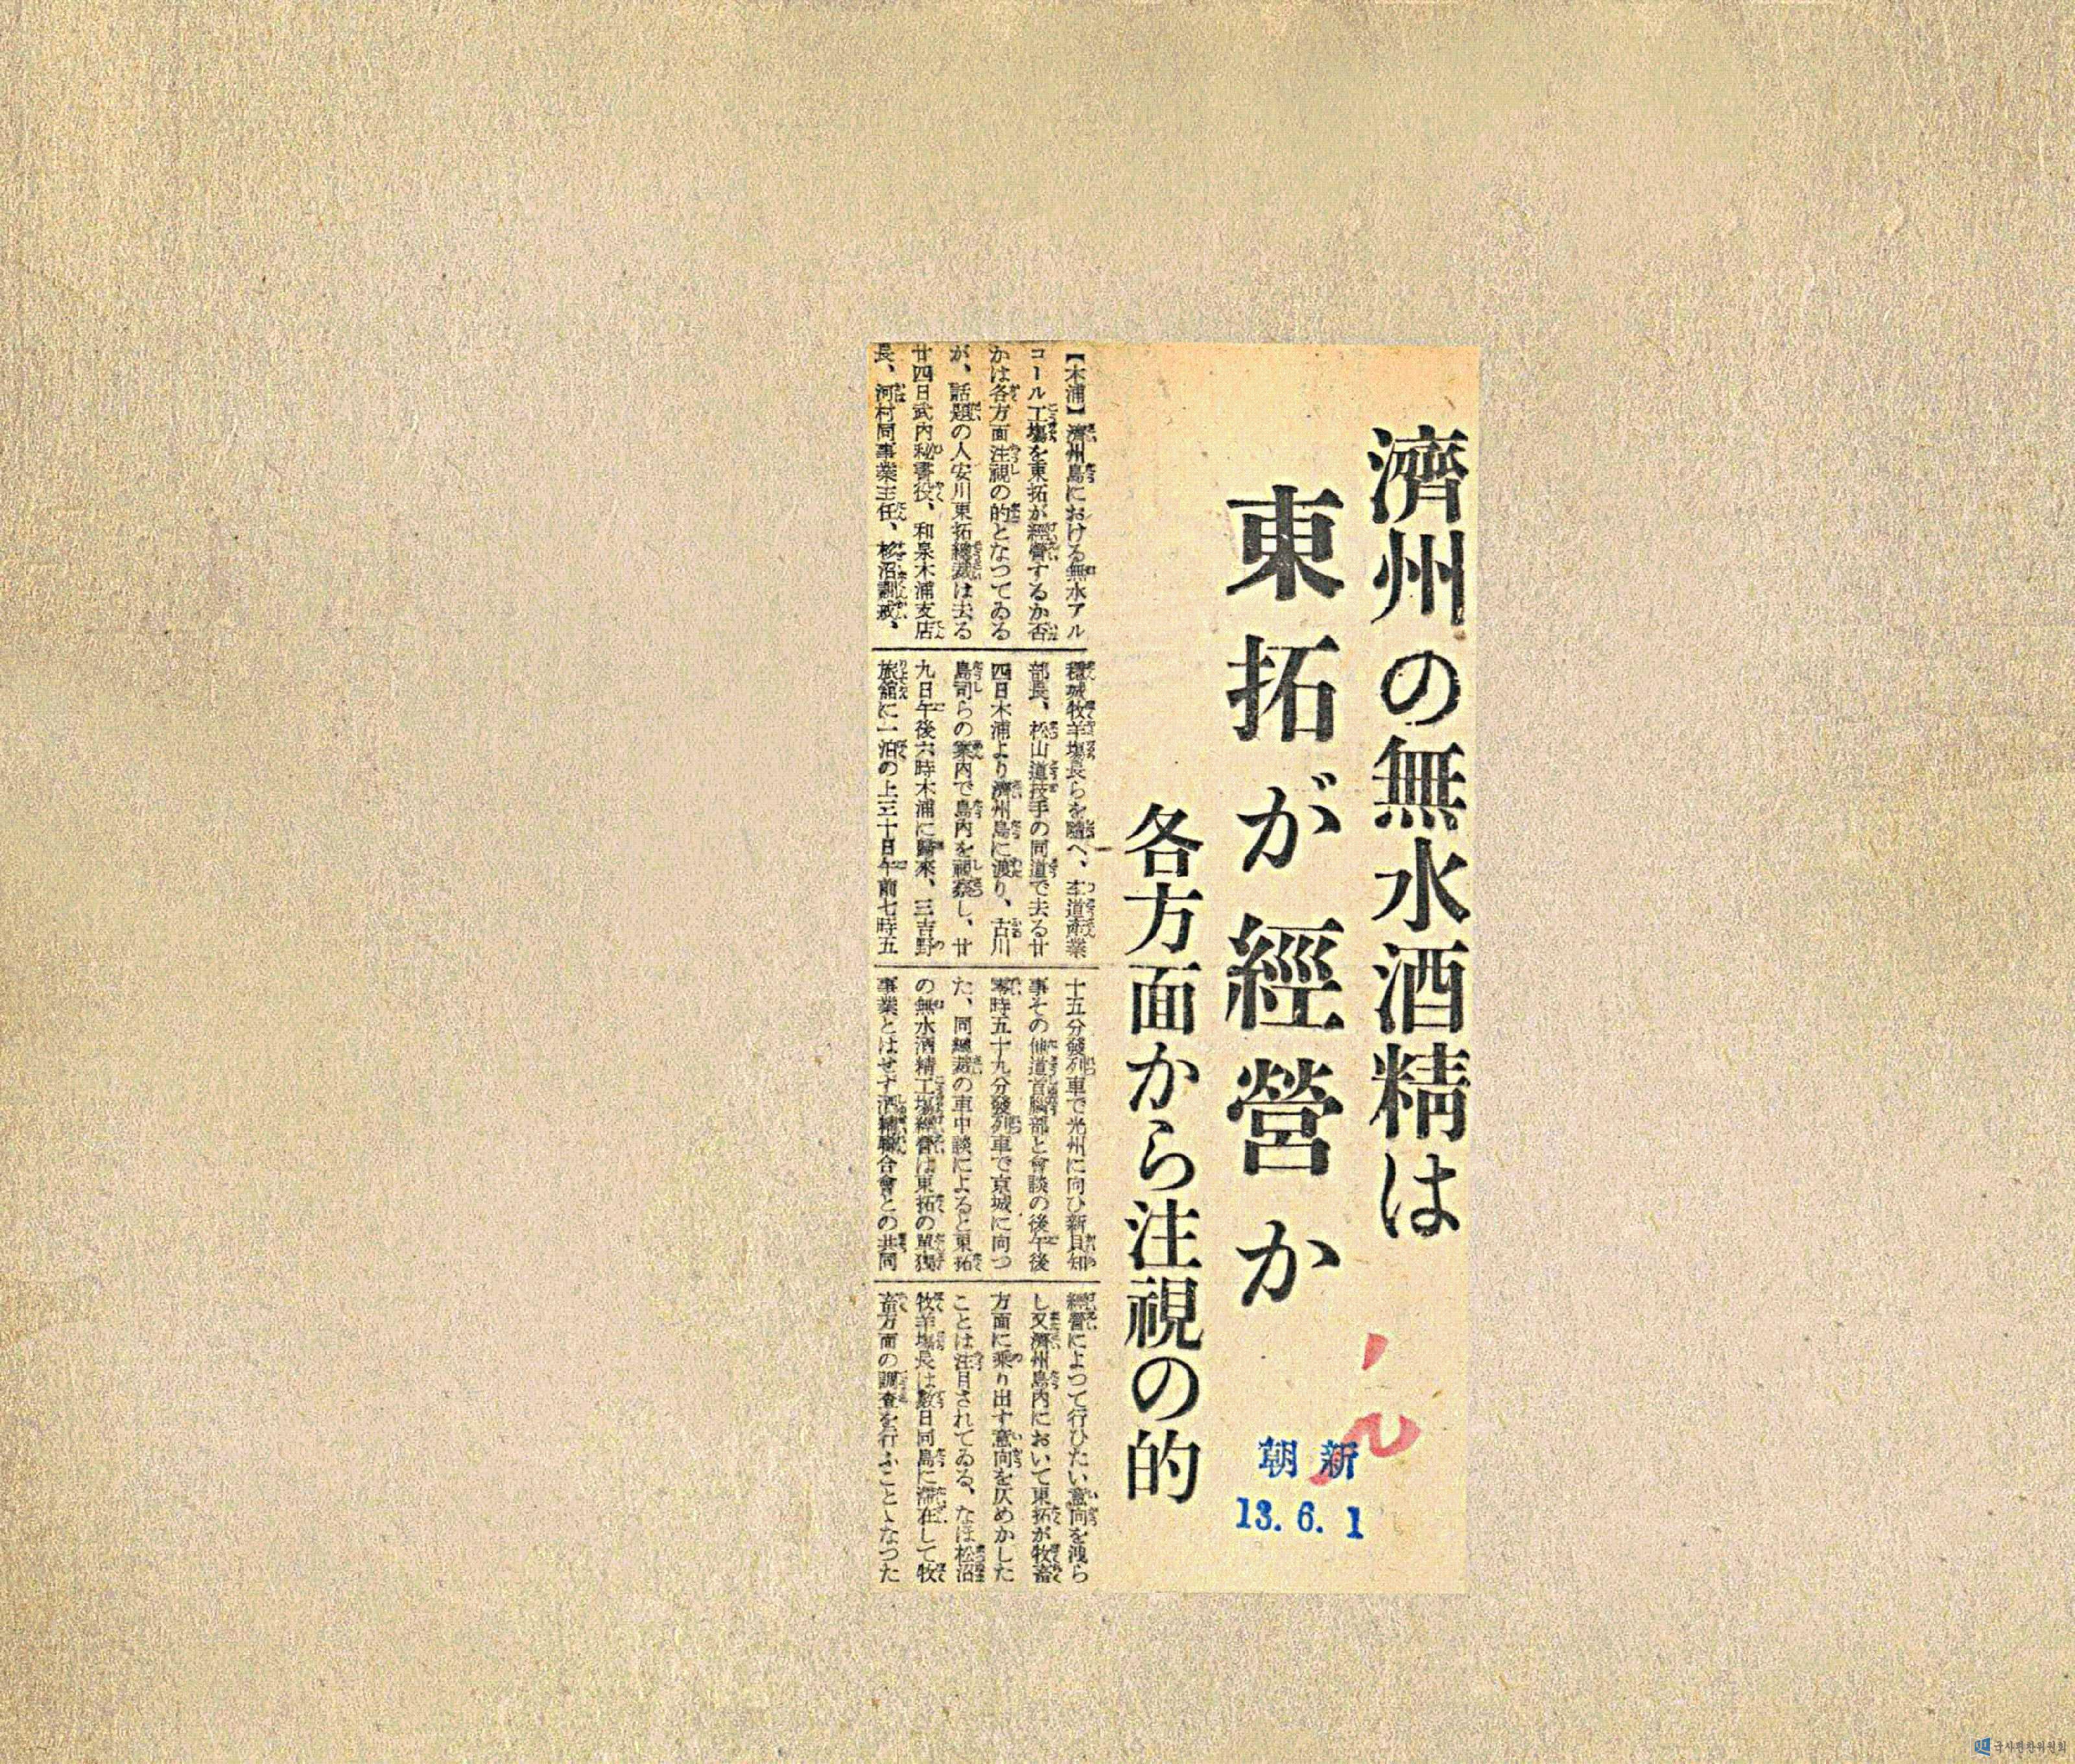 濟州の無水酒精は
東拓が經營か
各方面から注視の的
【木浦】濟州島における無水アル
コール工場を東拓が經營するか否
かは各方面注視の的となつてゐる
が、話題の人安川東拓總裁は去る
廿四日武内秘書役、和泉木浦支店
長、河村同事業主任、
牧羊場長らを隨へ、本道產業
部長、松山道技手の同道で去る廿
四日木浦より濟州島に渡り、古川
島司らの案内で島内を視察し、廿
九日午後六時木浦に歸來、三吉野
旅館に一泊の上三十日午前七時五
十五分發列車で光州に向ひ新貝知
事その他道首腦部と會談の後午後
零時五十九分發列車で京城に向つ
た、同總裁の車中談によると東拓
の無水酒精工場經營は東拓の單獨
事業とはせず酒精聯合會との共同
經營によつて行ひたい意向を洩ら
し又濟州島内において東拓が牧畜
方面に乘り出す意向を仄めかした
ことは注目されてゐる、なほ松沼
牧羊場長は數日同島に滯在して牧
畜方面の調査を行ふことゝなつた
朝新
13.6.1
국사편찬위원회